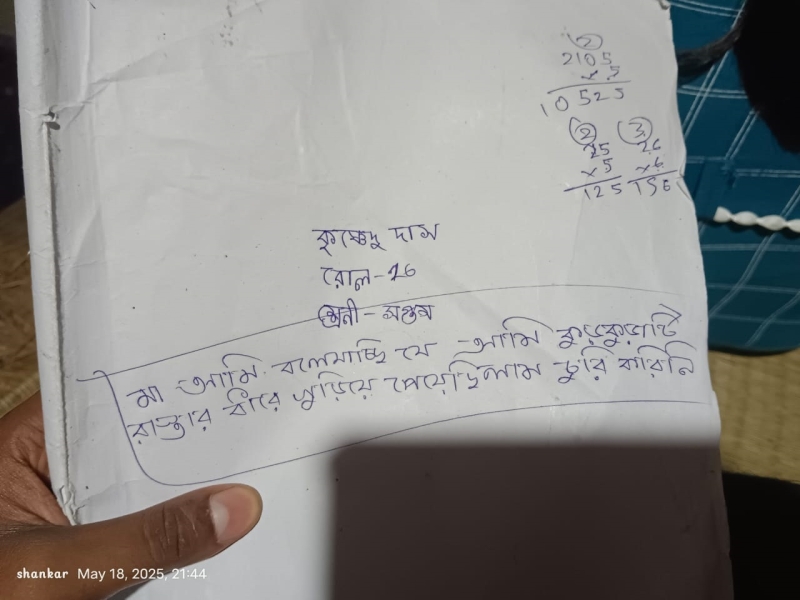 2
2105
×5
10525
2 3
25 26
×5 ×6
125 156
কৃষ্ণেন্দু দাস
রোল-26
শ্রেনী-সপ্তম
মা আমি বলেযাচ্ছি যে আমি কুড়কুড়াটি
রাস্তার ধীরে খুড়িয়ে পেয়েছিলাম চুরি করিনি
shankar May 18, 2025, 21:44